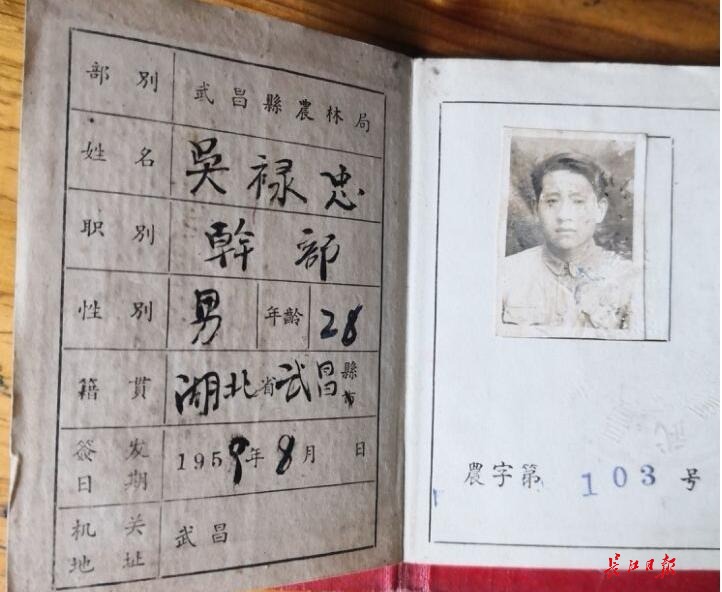 部别 武昌縣農林局
姓名 吳禄忠
职别 幹部
性别 男 年齡 28
籍貫 湖北省武昌縣市
签发日期 1959年8月 日
机关地址 武昌
農字第 103 号
長江日報